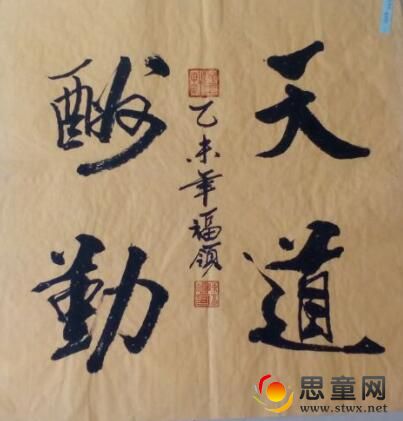 天道
酬勤
乙未年福领
思童网
www.stwx.net